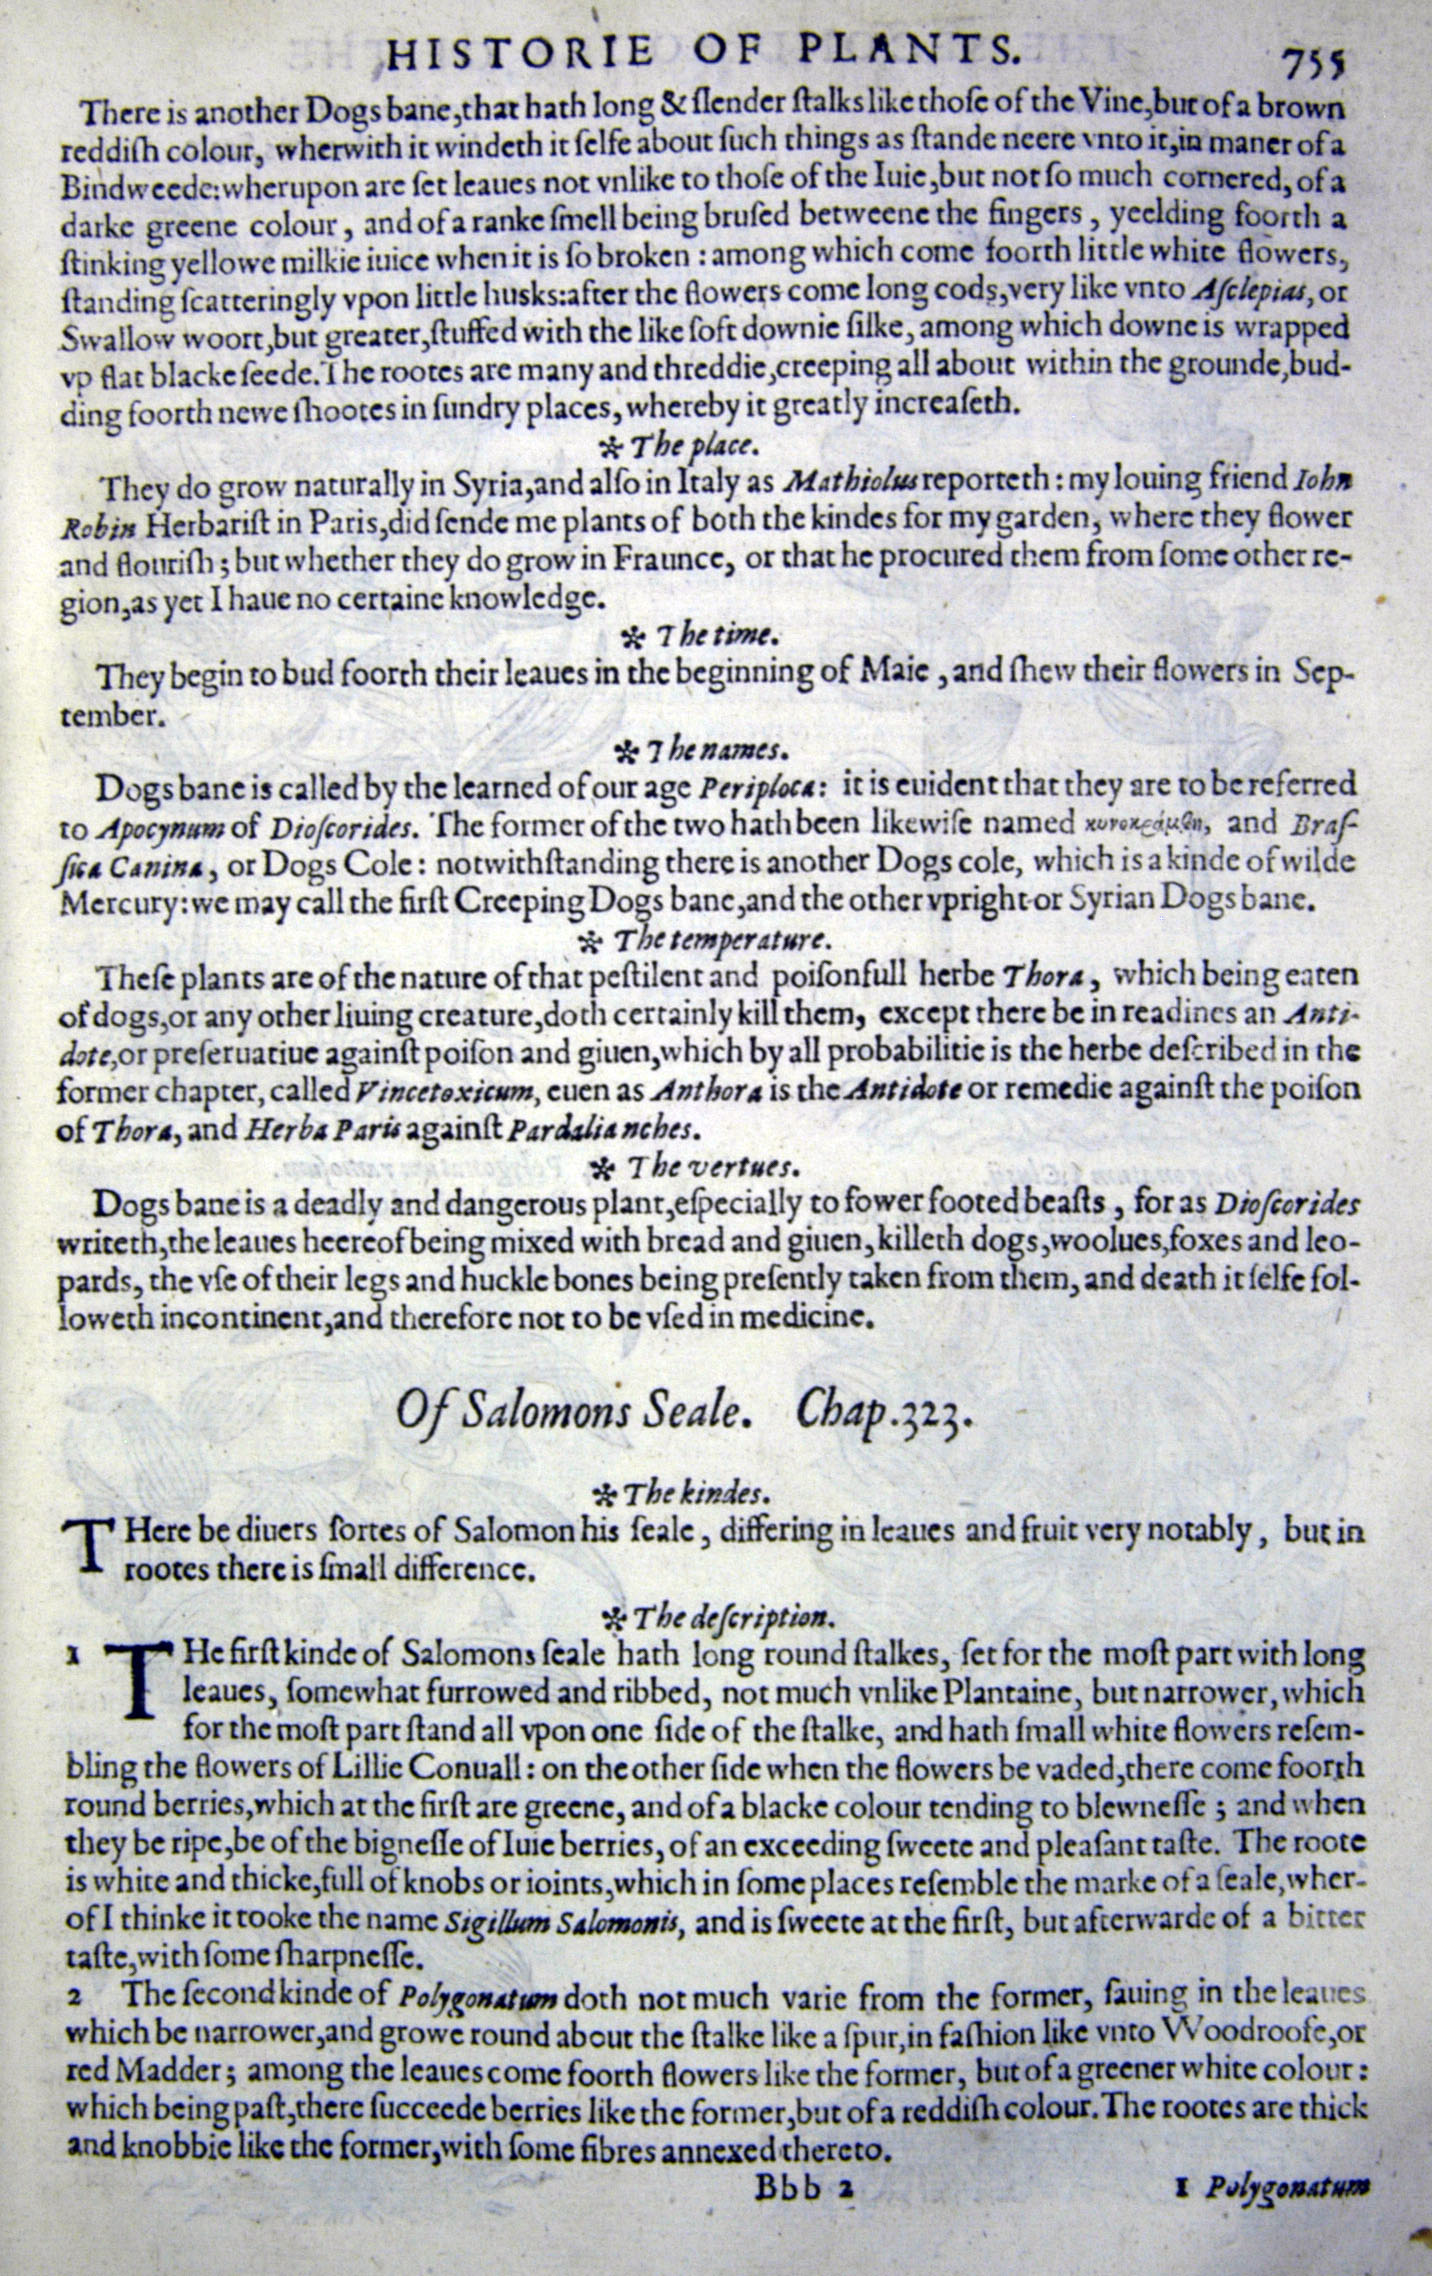 HISTORIE OF PLANTS. 755
There is another Dogs bane,that hath long & ſlender ſtalks like thoſe of the Vine,but of a brown
reddiſh colour, wherwith it windeth it ſelfe about ſuch things as ſtande neere vnto it,in maner of a
Bindweede:wherupon are ſet leaues not vnlike to thoſe of the Iuie,but not ſo much cornered, of a
darke greene colour, and of a ranke ſmell being bruſed betweene the fingers, yeelding foorth a
ſtinking yellowe milkie iuice when it is ſo broken : among which come foorth little white flowers,
ſtanding ſcatteringly vpon little husks:after the flowers come long cods,very like vnto Aſclepias, or
Swallow woort,but greater,ſtuffed with the like ſoft downie ſilke, among which downe is wrapped
vp flat blacke ſeede.The rootes are many and threddie,creeping all about within the grounde,bud-
ding foorth newe ſhootes in ſundry places, whereby it greatly increaſeth.
✻ The place.
They do grow naturally in Syria,and alſo in Italy as Mathiolus reporteth : my louing friend Iohn
Robin Herbariſt in Paris,did ſende me plants of both the kindes for my garden, where they flower
and flouriſh ; but whether they do grow in Fraunce, or that he procured them from ſome other re-
gion,as yet I haue no certaine knowledge.
✻ The time.
They begin to bud foorth their leaues in the beginning of Maie , and ſhew their flowers in Sep-
tember.
✻ The names.
Dogs bane is called by the learned of our age Periploca: it is euident that they are to be referred
to Apocynum of Dioſcorides. The former of the two hath been likewiſe named κυνοκράμβη, and Braſ-
ſica Canina, or Dogs Cole : notwithſtanding there is another Dogs cole, which is a kinde of wilde
Mercury:we may call the firſt Creeping Dogs bane,and the other vpright or Syrian Dogs bane.
✻ The temperature.
Theſe plants are of the nature of that peſtilent and poiſonfull herbe Thora, which being eaten
of dogs,or any other liuing creature,doth certainly kill them, except there be in readines an Anti-
dote,or preſeruatiue againſt poiſon and giuen,which by all probabilitie is the herbe deſcribed in the
former chapter, called Vincetoxicum, euen as Anthora is the Antidote or remedie againſt the poiſon
of Thora, and Herba Paris againſt Pardalianches.
✻ The vertues.
Dogs bane is a deadly and dangerous plant,eſpecially to fower footed beaſts , for as Dioſcorides
writeth,the leaues heereof being mixed with bread and giuen, killeth dogs,woolues,foxes and leo-
pards, the vſe of their legs and huckle bones being preſently taken from them, and death it ſelfe fol-
loweth incontinent,and therefore not to be vſed in medicine.
Of Salomons Seale. Chap.323.
✻ The kindes.
THere be diuers ſortes of Salomon his ſeale , differing in leaues and fruit very notably , but in
rootes there is ſmall difference.
✻ The deſcription.
1 THe firſt kinde of Salomons ſeale hath long round ſtalkes, ſet for the moſt part with long
leaues, ſomewhat furrowed and ribbed, not much vnlike Plantaine, but narrower, which
for the moſt part ſtand all vpon one ſide of the ſtalke, and hath ſmall white flowers reſem-
bling the flowers of Lillie Conuall : on the other ſide when the flowers be vaded,there come foorth
round berries,which at the firſt are greene, and of a blacke colour tending to blewneſſe ; and when
they be ripe,be of the bigneſſe of Iuie berries, of an exceeding ſweete and pleaſant taſte. The roote
is white and thicke,full of knobs or ioints,which in ſome places reſemble the marke of a ſeale,wher-
of I thinke it tooke the name Sigillum Salomonis, and is ſweete at the firſt, but afterwarde of a bitter
taſte,with ſome ſharpneſſe.
2 The ſecond kinde of Polygonatum doth not much varie from the former, ſauing in the leaues
which be narrower,and growe round about the ſtalke like a ſpur,in faſhion like vnto Woodroofe,or
red Madder ; among the leaues come foorth flowers like the former, but of a greener white colour :
which being paſt,there ſucceede berries like the former,but of a reddiſh colour.The rootes are thick
and knobbie like the former,with ſome fibres annexed thereto.
Bbb 2 1 Polygonatum